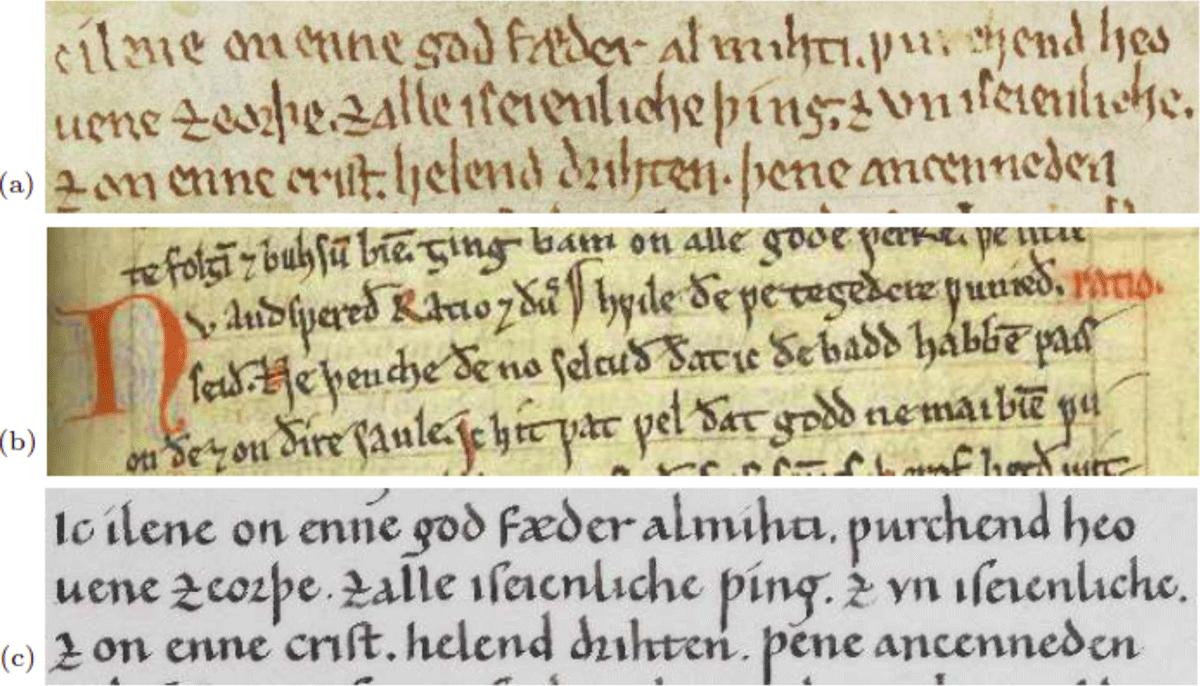 (a)
ilene on enne god fæder almihti. ƿurchend heo
uene ⁊ eorþe. ⁊ alle iseienliche þing; ⁊ vn iseienliche.
⁊ on enne crist. helend drihten. þene ancenneden
(b)
te folȝī ⁊ buhsū biē. Ðing ham on alle gode ƿerke.
N
v. andsƿereð Ratio ⁊ ðus hƿile ðe ƿe togedere ƿunieð. ratio.
seið. Ne þenche ðe no selcuð ðat ic ðe badd habbē ƿas
on ðe ⁊ on ðire saule. Ic hit ƿat ƿel ðat godd ne mai biē ƿu
(c)
Ic ilene on enne god fæder almihti. ƿurchend heo
uene ⁊ eorþe. ⁊ alle iseienliche þing. ⁊ vn iseienliche.
⁊ on enne crist. helend drihten. þene ancenneden